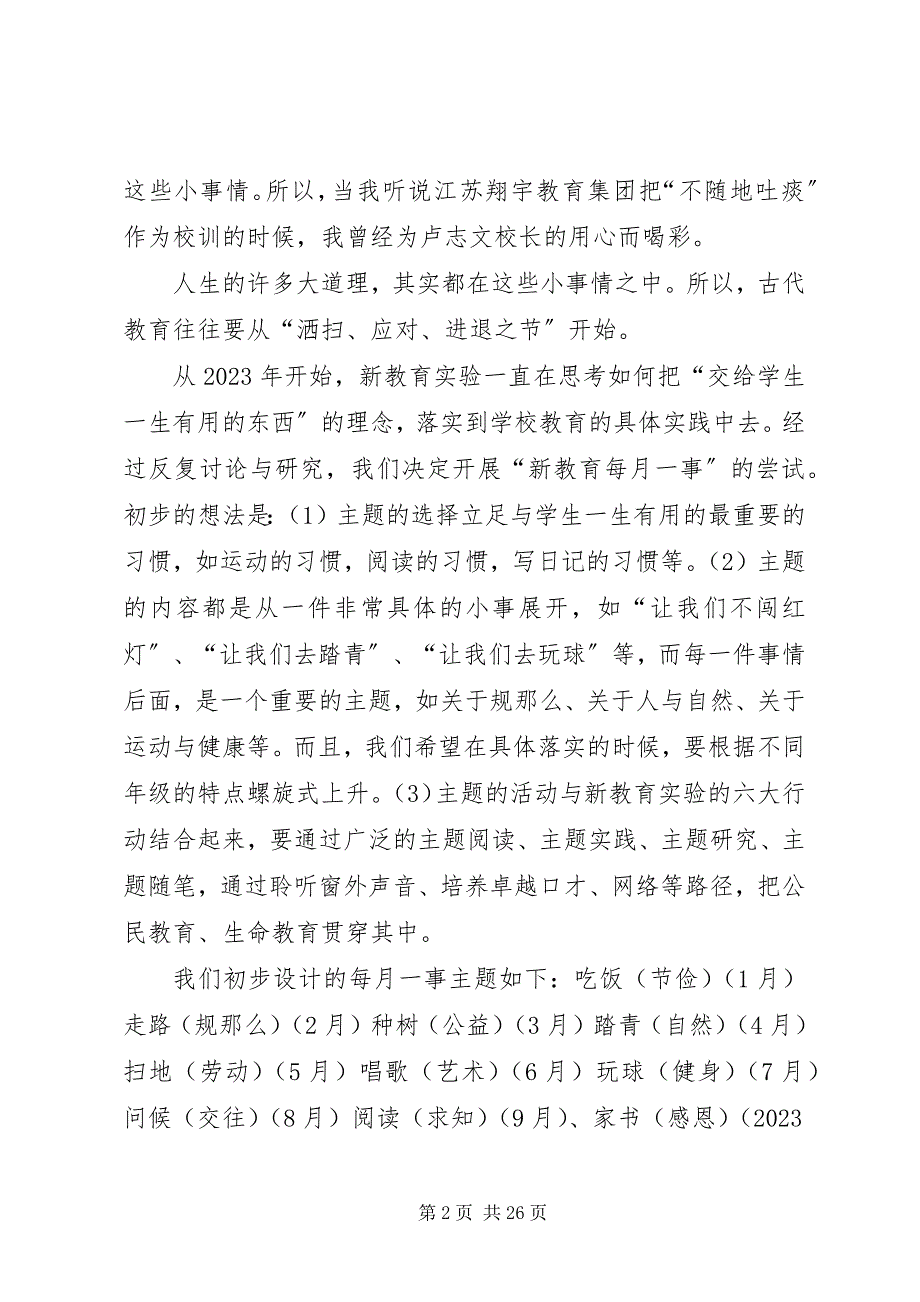 这些小事情。所以，当我听说江苏翔宇教育集团把“不随地吐痰〞
作为校训的时候，我曾经为卢志文校长的用心而喝彩。
人生的许多大道理，其实都在这些小事情之中。所以，古代
教育往往要从“洒扫、应对、进退之节〞开始。
从 2023 年开始，新教育实验一直在思考如何把“交给学生
一生有用的东西〞的理念，落实到学校教育的具体实践中去。经
过反复讨论与研究，我们决定开展“新教育每月一事〞的尝试。
初步的想法是：（1）主题的选择立足与学生一生有用的最重要的
习惯，如运动的习惯，阅读的习惯，写日记的习惯等。（2）主题
的内容都是从一件非常具体的小事展开，如“让我们不闯红
灯〞、“让我们去踏青〞、“让我们去玩球〞等，而每一件事情
后面，是一个重要的主题，如关于规那么、关于人与自然、关于
运动与健康等。而且，我们希望在具体落实的时候，要根据不同
年级的特点螺旋式上升。（3）主题的活动与新教育实验的六大行
动结合起来，要通过广泛的主题阅读、主题实践、主题研究、主
题随笔，通过聆听窗外声音、培养卓越口才、网络等路径，把公
民教育、生命教育贯穿其中。
我们初步设计的每月一事主题如下：吃饭（节俭）（1 月）
走路（规那么）（2 月）种树（公益）（3 月）踏青（自然）（4 月）
扫地（劳动）（5 月）唱歌（艺术）（6 月）玩球（健身）（7 月）
问候（交往）（8 月）阅读（求知）（9 月）、家书（感恩）（2023
第 2 页 共 26 页